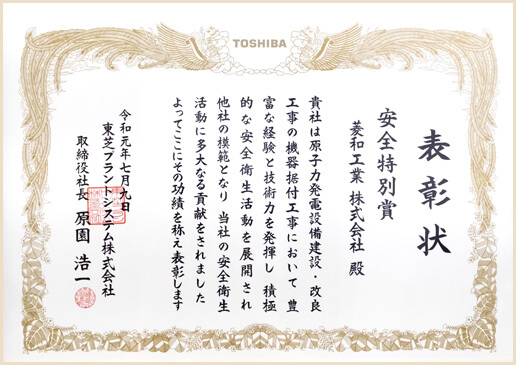 TOSHIBA
表彰状
安全特別賞
菱和工業 株式会社 殿
貴社は原子力発電設備建設・改良
工事の機器据付工事において 豊
富な経験と技術力を発揮し 積極
的な安全衛生活動を展開され
他社の模範となり 当社の安全衛生
活動に多大なる貢献をされました
よってここにその功績を称え表彰します
令和元年七月九日
東芝プラントシステム株式会社
取締役社長 原園 浩一